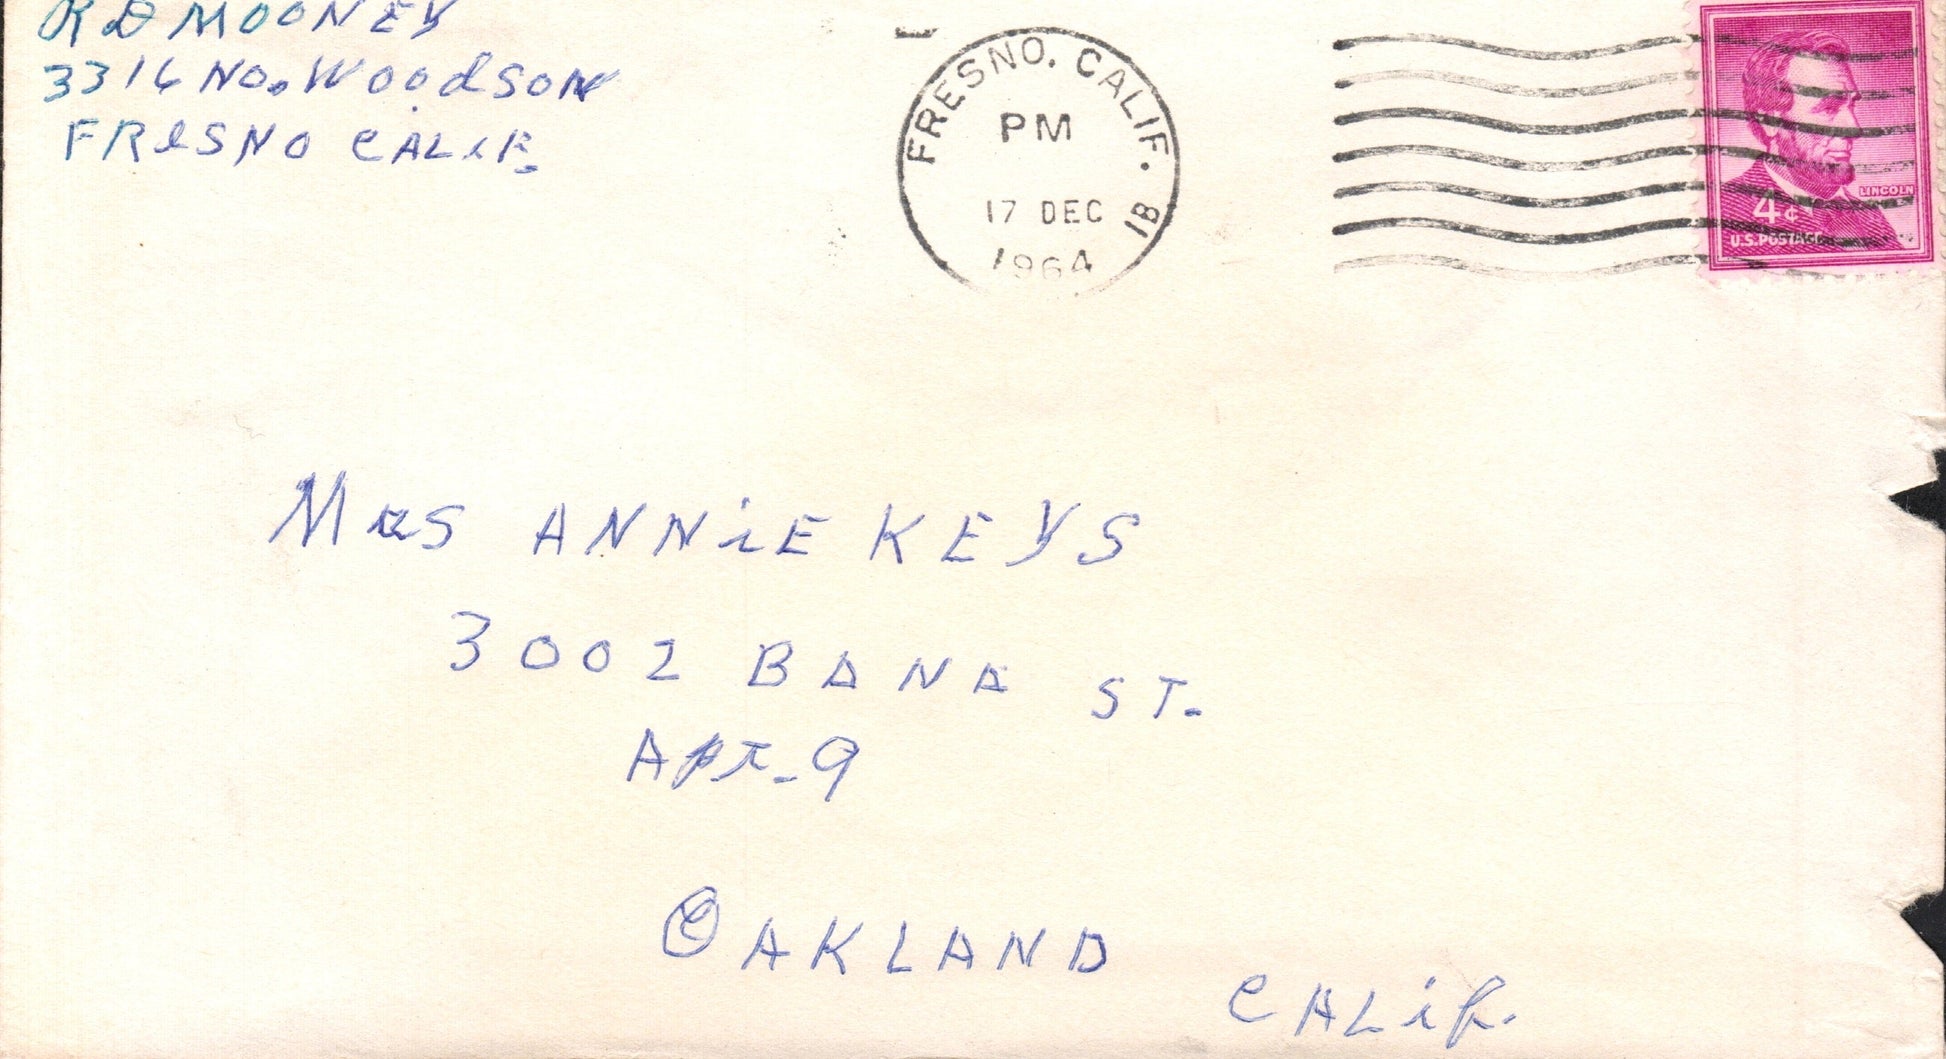 RD MOONEY
3316 No. Woodson
FRESNO CALIF.
FRESNO, CALIF.
PM
17 DEC
1964
1B
LINCOLN
4¢
U.S. POSTAGE
MRS ANNIE KEYS
3002 BANA ST.
APT. 9
OAKLAND
CALIF.